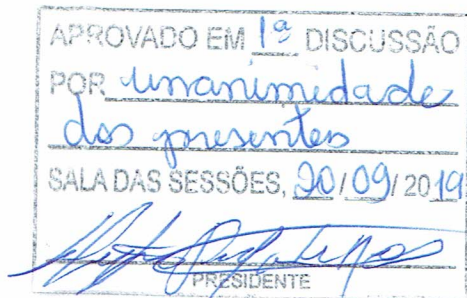 APROVADO EM 1ª DISCUSSÃO
POR unanimidade
dos presentes
SALA DAS SESSÕES, 20/09/2019
PRESIDENTE